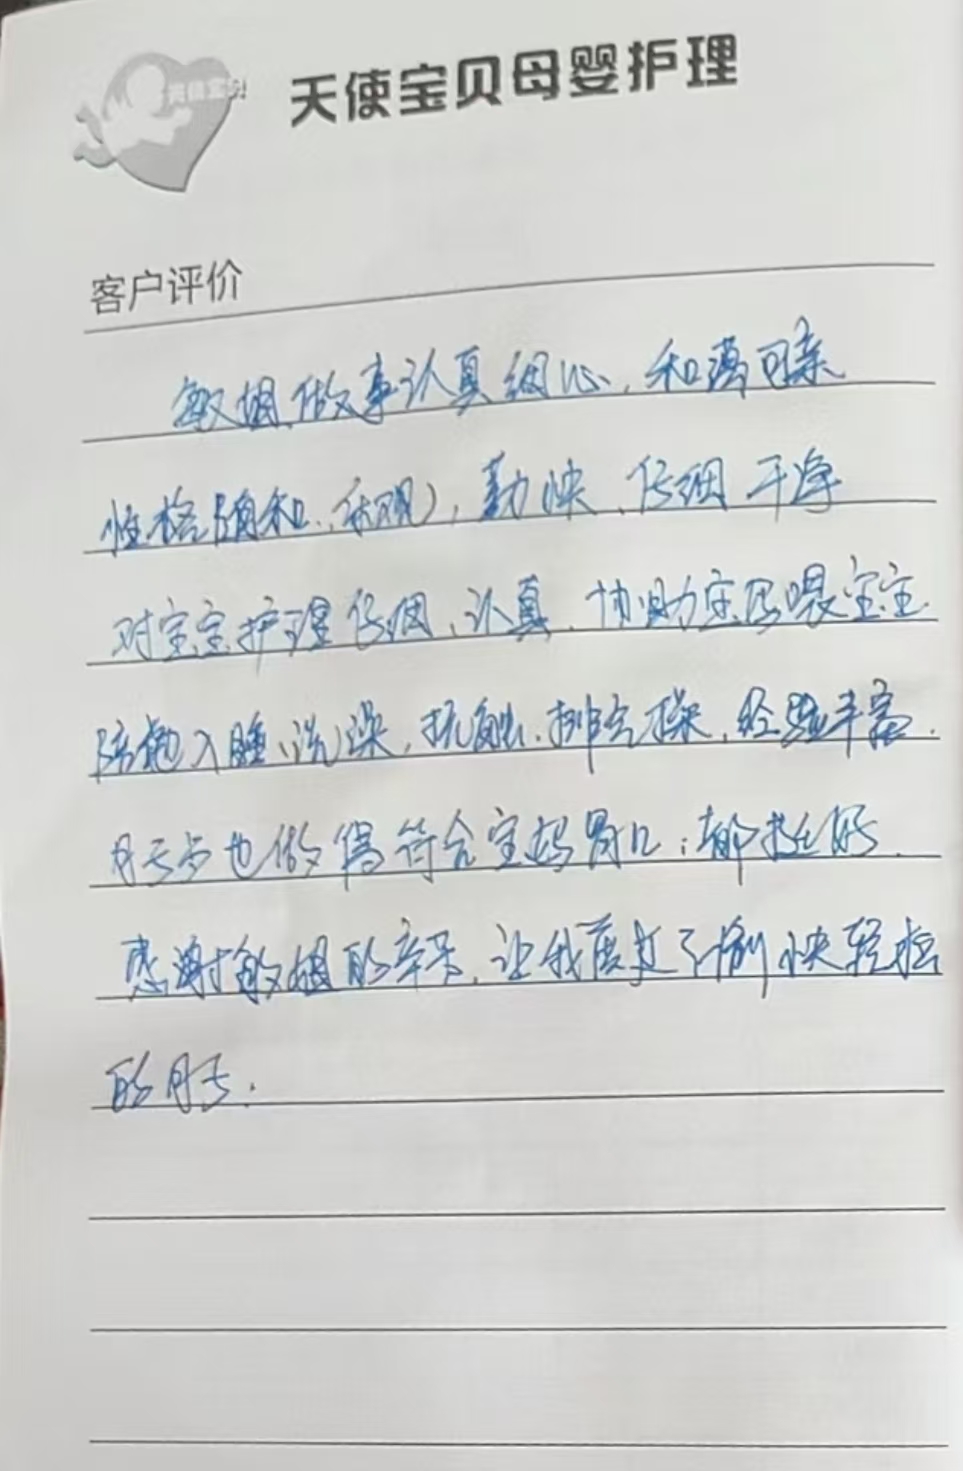 天使宝贝
天使宝贝母婴护理
客户评价
敏姐、做事认真细心，和蔼可亲
性格随和、乐观，勤快、仔细 干净
对宝宝护理仔细、认真、协助宝妈喂宝宝
陪抱入睡、洗澡，抚触、排气操，经验丰富.
月子餐也做得符合宝妈胃口；都挺好.
感谢敏姐的辛苦，让我度过了愉快轻松
的月子.